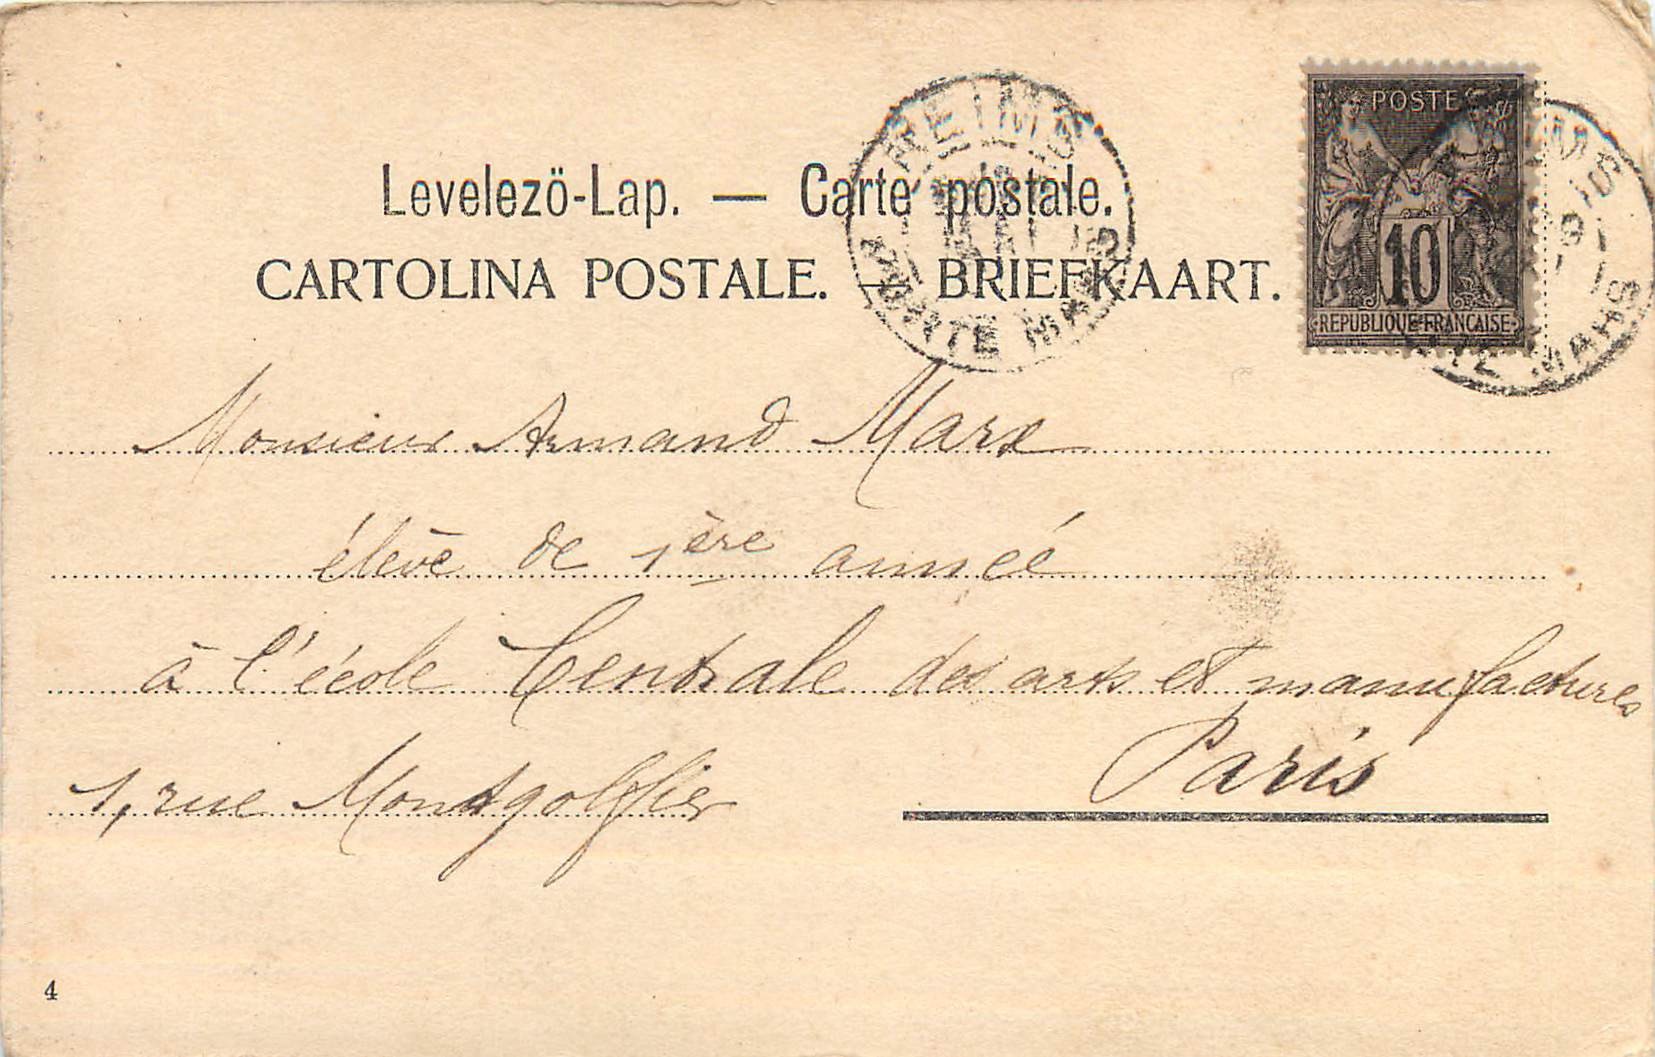 POSTE
10
REPUBLIQUE FRANCAISE
REIMS
PORTE MARS
Levelezö-Lap. — Carte postale.
CARTOLINA POSTALE. — BRIEFKAART.
Monsieur Armand Marx
élève de 1ère année
à l'école Centrale des arts et manufactures
Paris
1, rue Montgolfier
4